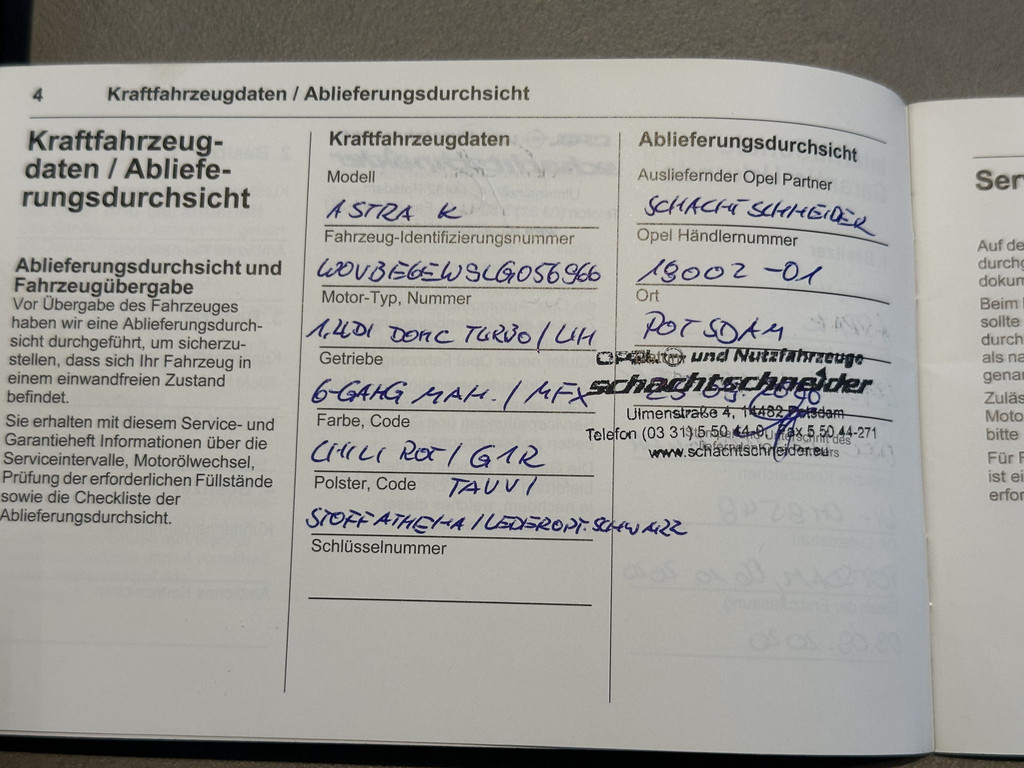 4 Kraftfahrzeugdaten / Ablieferungsdurchsicht
Kraftfahrzeug-
daten / Abliefe-
rungsdurchsicht
Ablieferungsdurchsicht und
Fahrzeugübergabe
Vor Übergabe des Fahrzeuges
haben wir eine Ablieferungsdurch-
sicht durchgeführt, um sicherzu-
stellen, dass sich Ihr Fahrzeug in
einem einwandfreien Zustand
befindet.
Sie erhalten mit diesem Service- und
Garantieheft Informationen über die
Serviceintervalle, Motorölwechsel,
Prüfung der erforderlichen Füllstände
sowie die Checkliste der
Ablieferungsdurchsicht.
Kraftfahrzeugdaten
Modell
ASTRA K
Fahrzeug-Identifizierungsnummer
W0VBE6EW9LG056966
Motor-Typ, Nummer
DOHC TURBO /
Getriebe
6-GANG MAN. / MFX
Farbe, Code
CHILI ROT / G1R
Polster, Code TAVV
STOFF ATHENA / LEDEROPT. SCHWARZ
Schlüsselnummer
Ablieferungsdurchsicht
Ausliefernder Opel Partner
SCHACHTSCHNEIDER
Opel Händlernummer
19002-01
Ort
POTSDAM
OPEL und Nutzfahrzeuge
schachtschneider
Ulmenstraße 4, 14482 Potsdam
Telefon (03 31) 5 50 44-0 Fax 5 50 44-271
www.schachtschneider.eu
Ser
Auf de
durchg
dokun
Beim
sollte
durch
als na
genan
Zuläs
Moto
bitte
Für F
ist ei
erfor